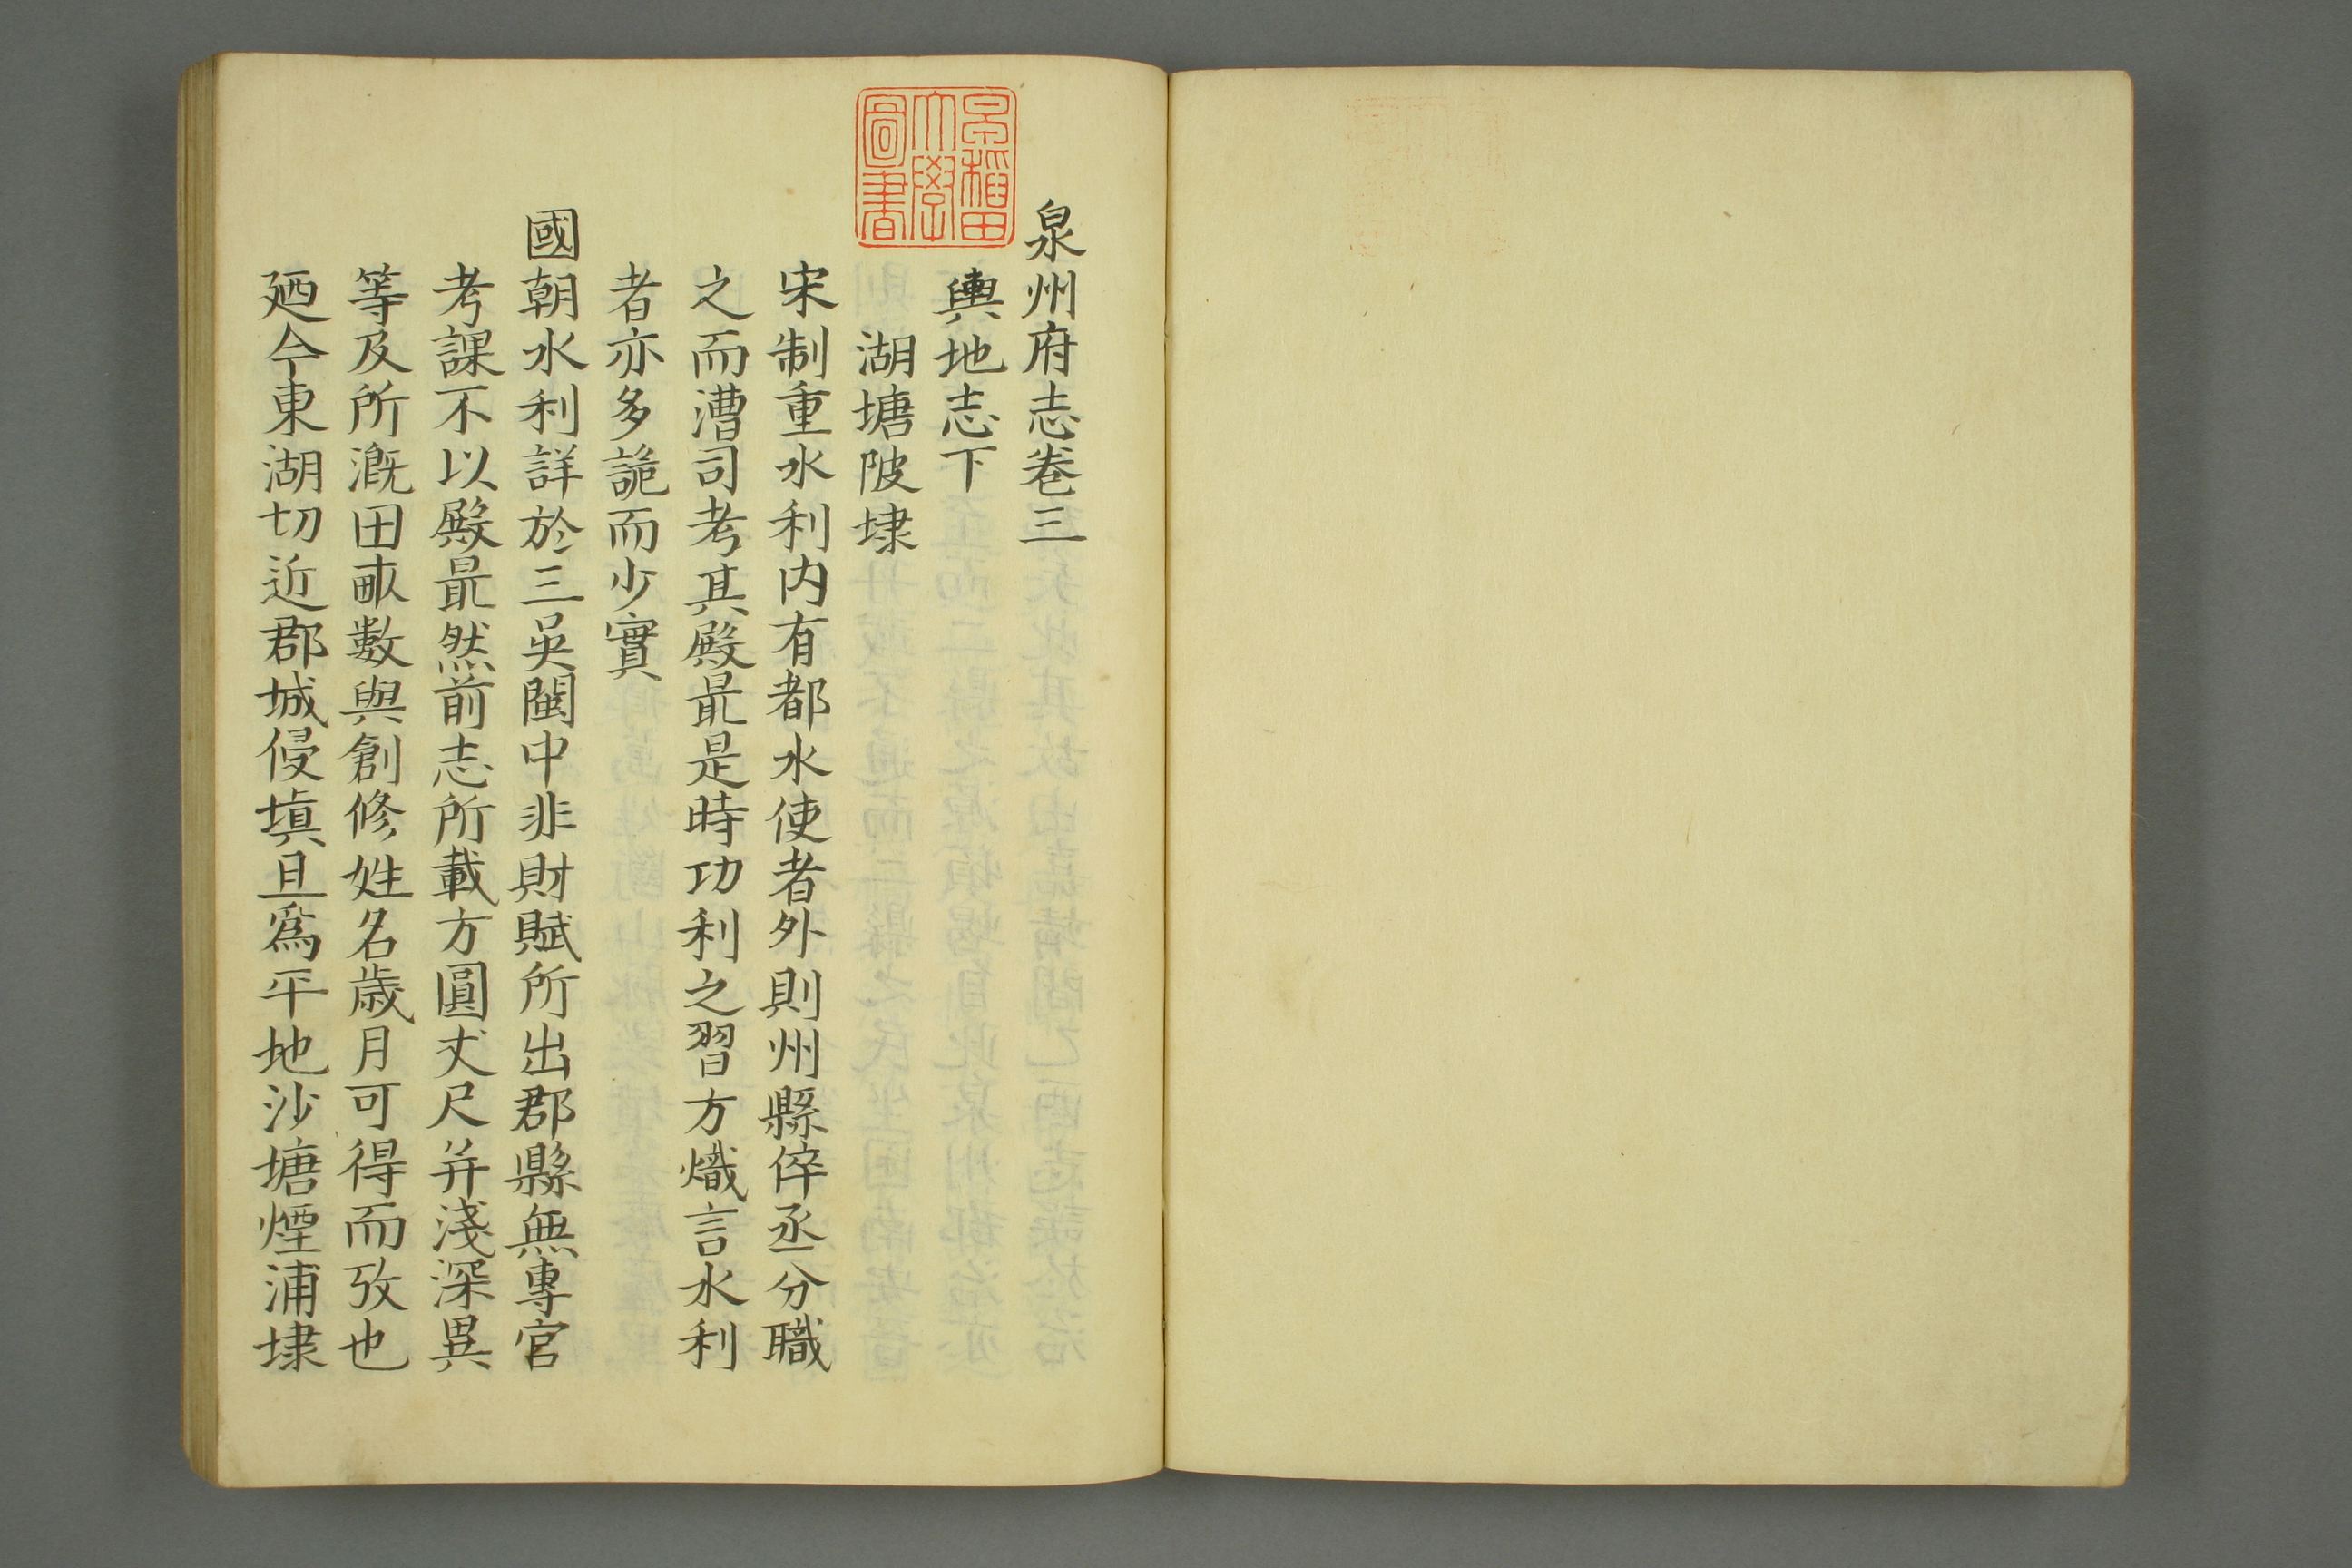 泉州府志卷三
輿地志下
湖塘陂埭
宋制重水利内有都水使者外則州縣倅丞分職
之而漕司考其殿最是時功利之習方熾言水利
者亦多詭而少實
國朝水利詳於三吳閩中非財賦所出郡縣無專官
考課不以殿最然前志所載方圓丈尺并淺深異
等及所溉田畝數與創修姓名歲月可得而攷也
廼今東湖切近郡城侵填且爲平地沙塘煙浦埭
早稲田
大學
圖書